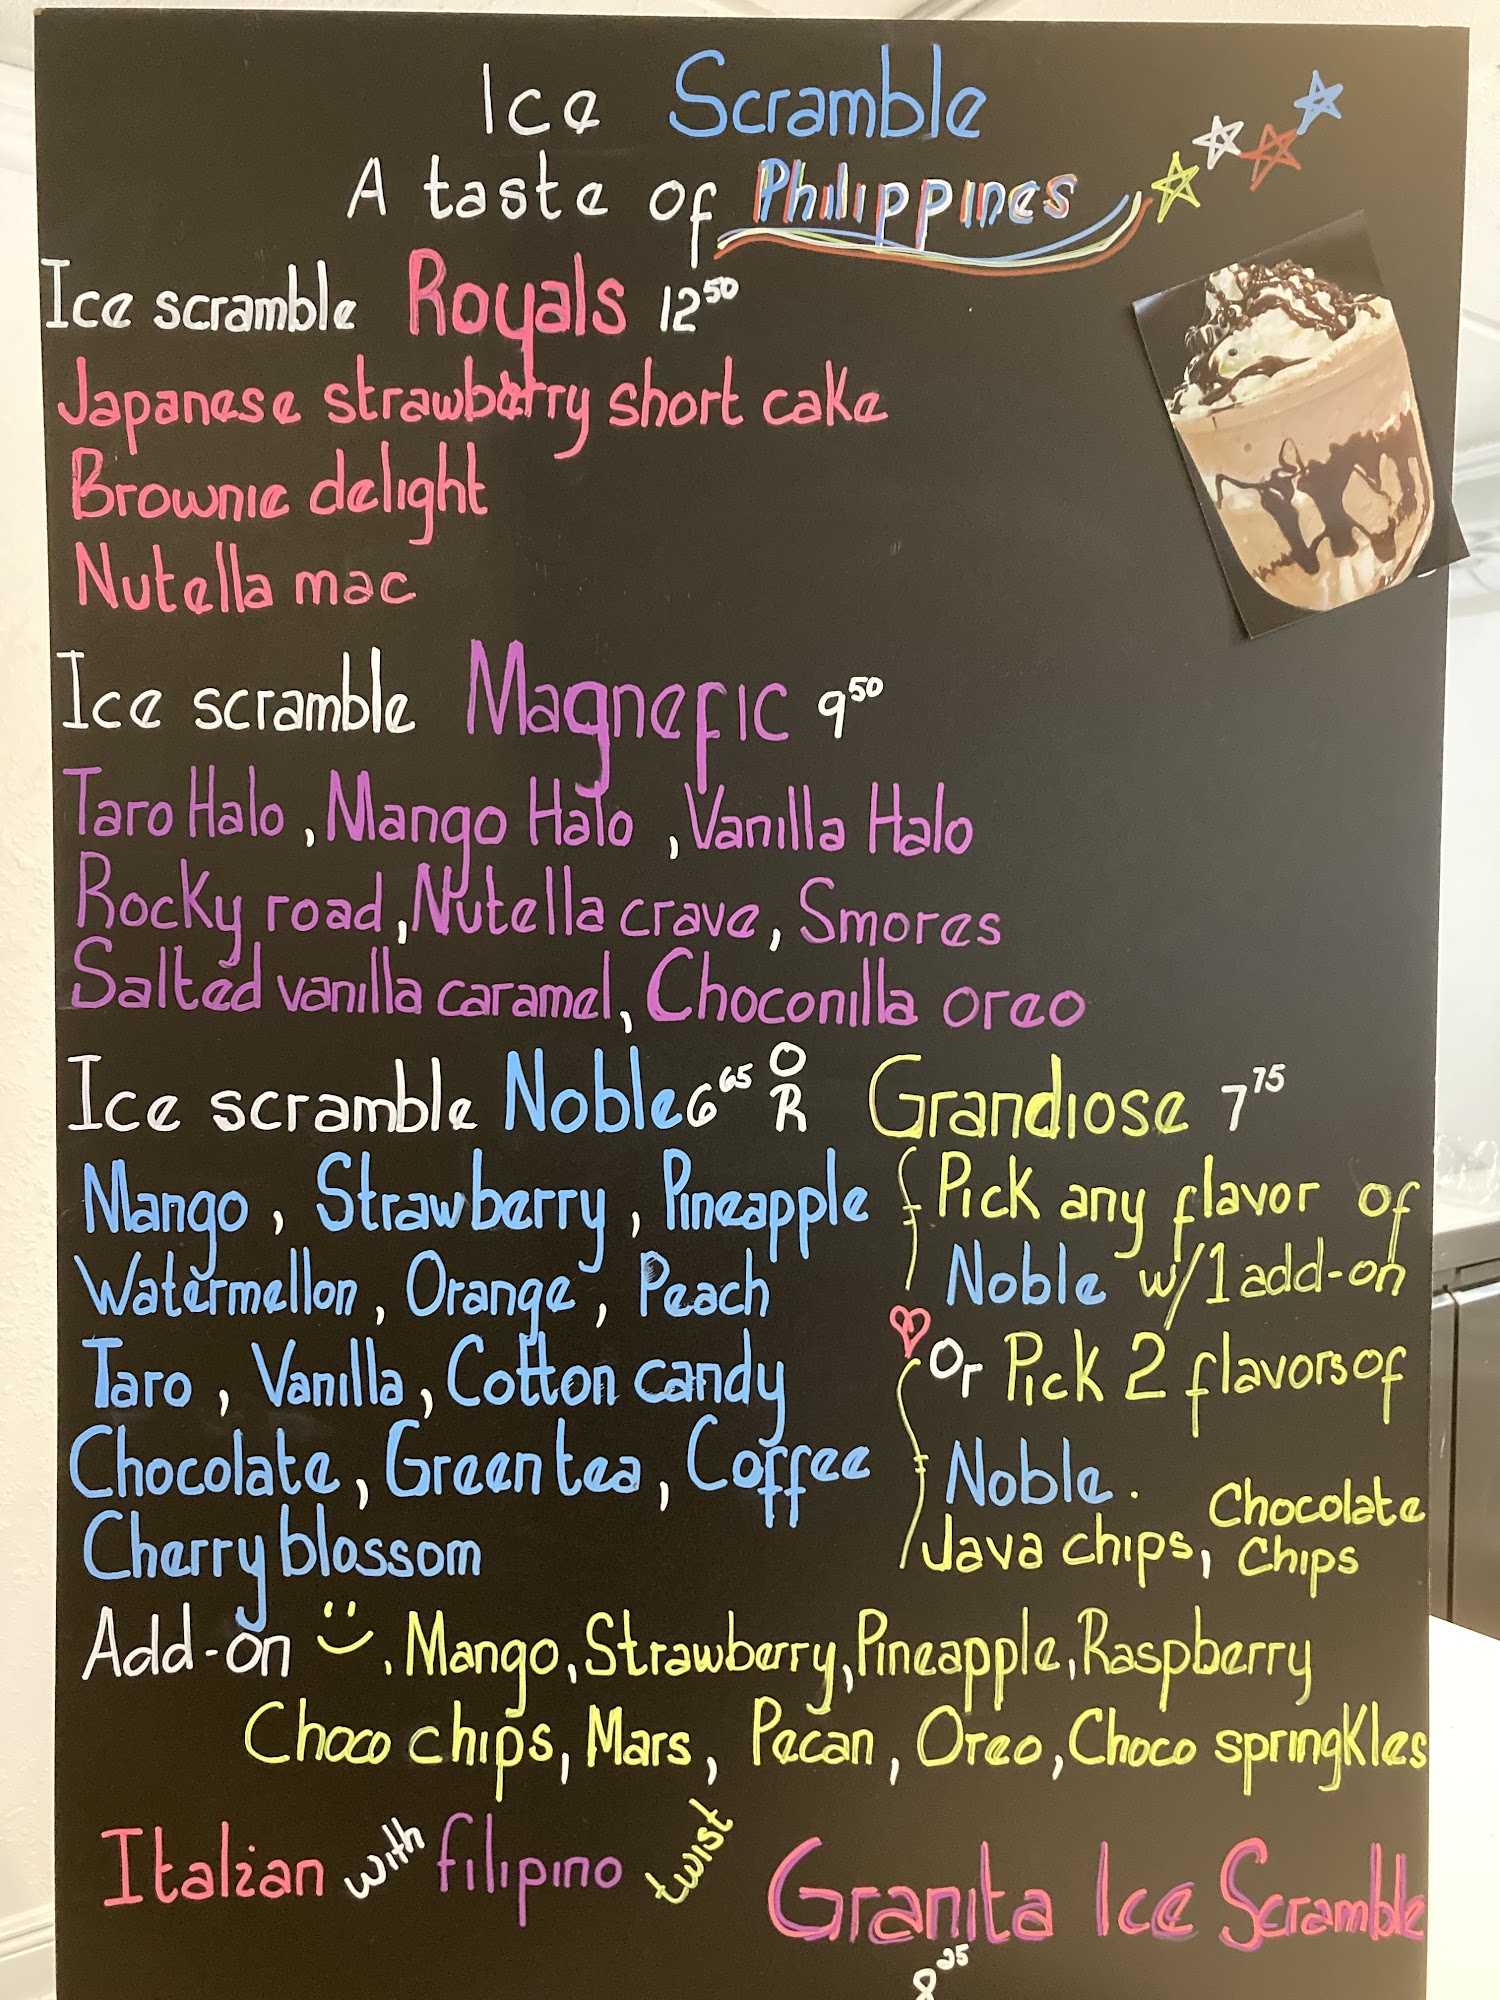 Ice Scramble
A taste of Philippines
Ice scramble Royals 12 50
Japanese strawberry short cake
Brownie delight
Nutella mac
Ice scramble Magnefic 9 50
Taro Halo, Mango Halo, Vanilla Halo
Rocky road, Nutella crave, Smores
Salted vanilla caramel, Choconilla oreo
Ice scramble Noble 6 65 OR Grandiose 7 75
Mango, Strawberry, Pineapple
Watermellon, Orange, Peach
Taro, Vanilla, Cotton candy
Chocolate, Green tea, Coffee
Cherry blossom
Pick any flavor of
Noble w/1 add-on
Or Pick 2 flavors of
Noble.
Java chips, Chocolate Chips
Add-on . Mango, Strawberry, Pineapple, Raspberry
Choco chips, Mars, Pecan, Oreo, Choco springkles
Italian with filipino twist
Granita Ice Scramble
8 25